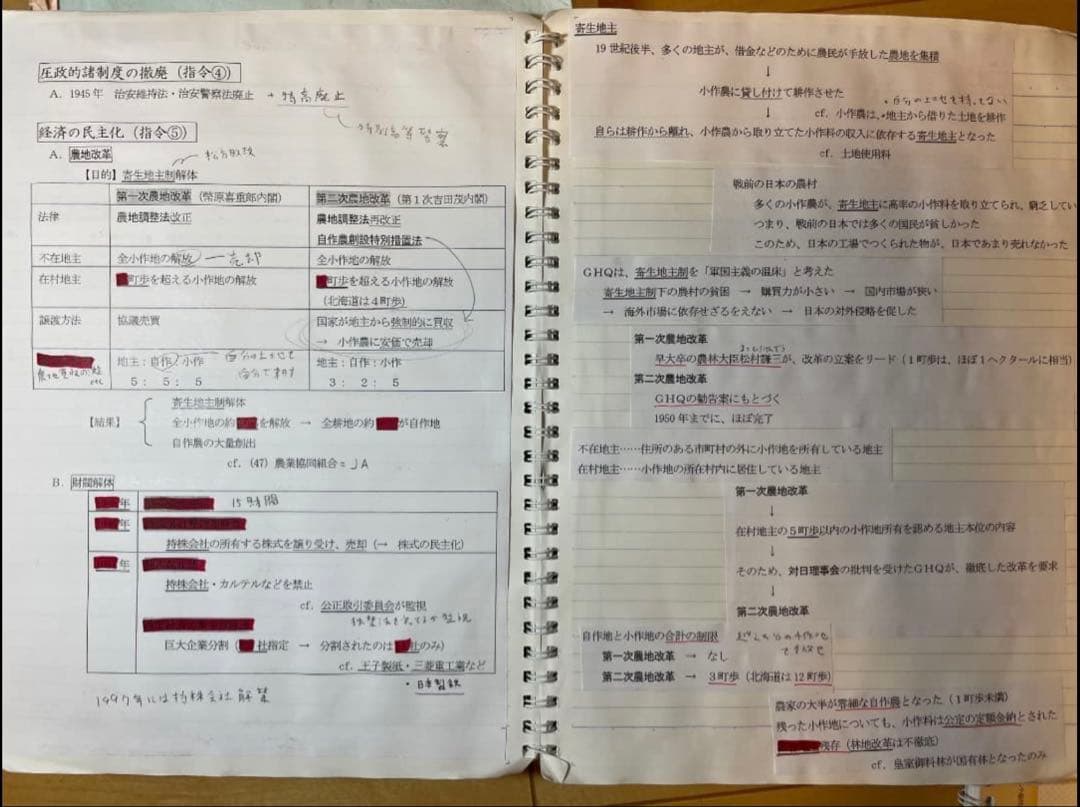 圧政的諸制度の撤廃(指令④)
A. 1945年 治安維持法・治安警察法廃止 + 特高廃止
特別高等警察
経済の民主化(指令⑤)
A. 農地改革
【目的】寄生地主制解体
第一次農地改革(幣原喜重郎内閣) 第二次農地改革(第1次吉田茂内閣)
法律 農地調整法改正 農地調整法再改正
自作農創設特別措置法
不在地主 全小作地の解放 ー 売却 全小作地の解放
在村地主 町歩を超える小作地の解放 町歩を超える小作地の解放
(北海道は4町歩)
譲渡方法 協議売買 国家が地主から強制的に買収
→ 小作農に安価で売却
地主:自作:小作 地主:自作:小作
自分の土地を
自分で耕す
5: 5: 5 3: 2: 5
【結果】 寄生地主制解体
全小作地の約 を解放 → 全耕地の約 が自作地
自作農の大量創出
cf. (47) 農業協同組合 = JA
B. 財閥解体
年 15財閥
年
持株会社の所有する株式を譲り受け、売却(→ 株式の民主化)
年
持株会社・カルテルなどを禁止
cf. 公正取引委員会が監視
巨大企業分割( 社指定 → 分割されたのは 社のみ)
cf. 王子製紙・三菱重工業など
・日本製鉄
1997年には持株会社解禁
寄生地主
19世紀後半、多くの地主が、借金などのために農民が手放した農地を集積
↓
小作農に貸し付けて耕作させた
・自分の土地を持たない
cf. 小作農は、地主から借りた土地を耕作
自らは耕作から離れ、小作農から取り立てた小作料の収入に依存する寄生地主となった
cf. 土地使用料
戦前の日本の農村
多くの小作農が、寄生地主に高率の小作料を取り立てられ、窮乏してい
つまり、戦前の日本では多くの国民が貧しかった
このため、日本の工場でつくられた物が、日本であまり売れなかった
GHQは、寄生地主制を「軍国主義の温床」と考えた
寄生地主制下の農村の貧困 → 購買力が小さい → 国内市場が狭い
→ 海外市場に依存せざるをえない → 日本の対外侵略を促した
第一次農地改革
早大卒の農林大臣松村謙三が、改革の立案をリード(1町歩は、ほぼ1ヘクタールに相当)
第二次農地改革
GHQの勧告案にもとづく
1950年までに、ほぼ完了
不在地主……住所のある市町村の外に小作地を所有している地主
在村地主……小作地の所在村内に居住している地主
第一次農地改革
↓
在村地主の5町歩以内の小作地所有を認める地主本位の内容
↓
そのため、対日理事会の批判を受けたGHQが、徹底した改革を要求
↓
第二次農地改革
自作地と小作地の合計の制限
第一次農地改革 → なし
第二次農地改革 → 3町歩(北海道は12町歩)
農家の大半が零細な自作農となった(1町歩未満)
残った小作地についても、小作料は公定の定額金納とされた
残存(林地改革は不徹底)
cf. 皇室御料林が国有林となったのみ